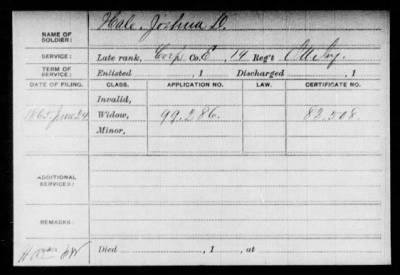 NAME OF SOLDIER: Hale, Joshua D.
SERVICE: Late rank, Corp. Co. E, 14 Reg't
TERM OF SERVICE: Enlisted , 1 Discharged , 1
DATE OF FILING. CLASS. APPLICATION NO. LAW. CERTIFICATE NO.
Invalid,
1865 June 24 Widow, 99.286. 82.508
Minor,
ADDITIONAL SERVICES:
REMARKS:
Died , 1 , at